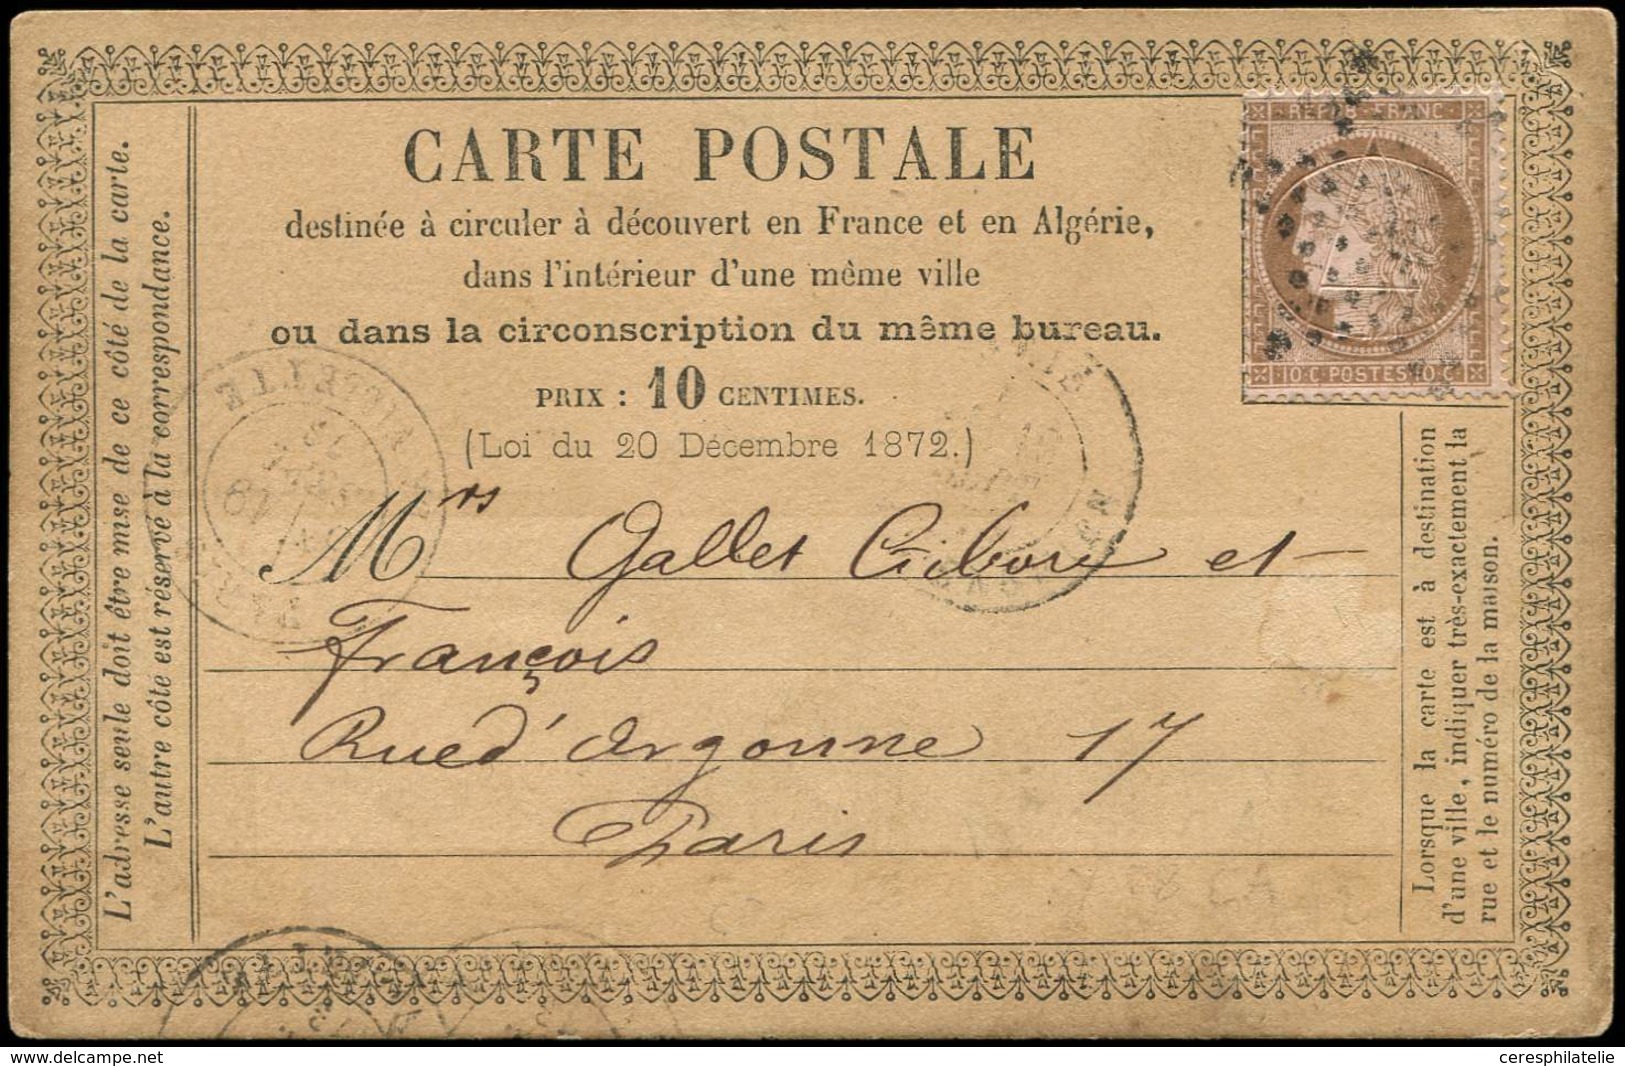 CARTE POSTALE
destinée à circuler à découvert en France et en Algérie,
dans l'intérieur d'une même ville
ou dans la circonscription du même bureau.
PRIX : 10 CENTIMES.
(Loi du 20 Décembre 1872.)
REPUB · FRANC ·
10 C POSTES 10 C
L'adresse seule doit être mise de ce côté de la carte.
L'autre côte est réservé à la correspondance.
Mrs Gallet et
François
Rue d'Argonne 17
Paris
Lorsque la carte est à destination
d'une ville, indiquer très-exactement la
rue et le numéro de la maison.
www.delcampe.net
ceresphilatelie